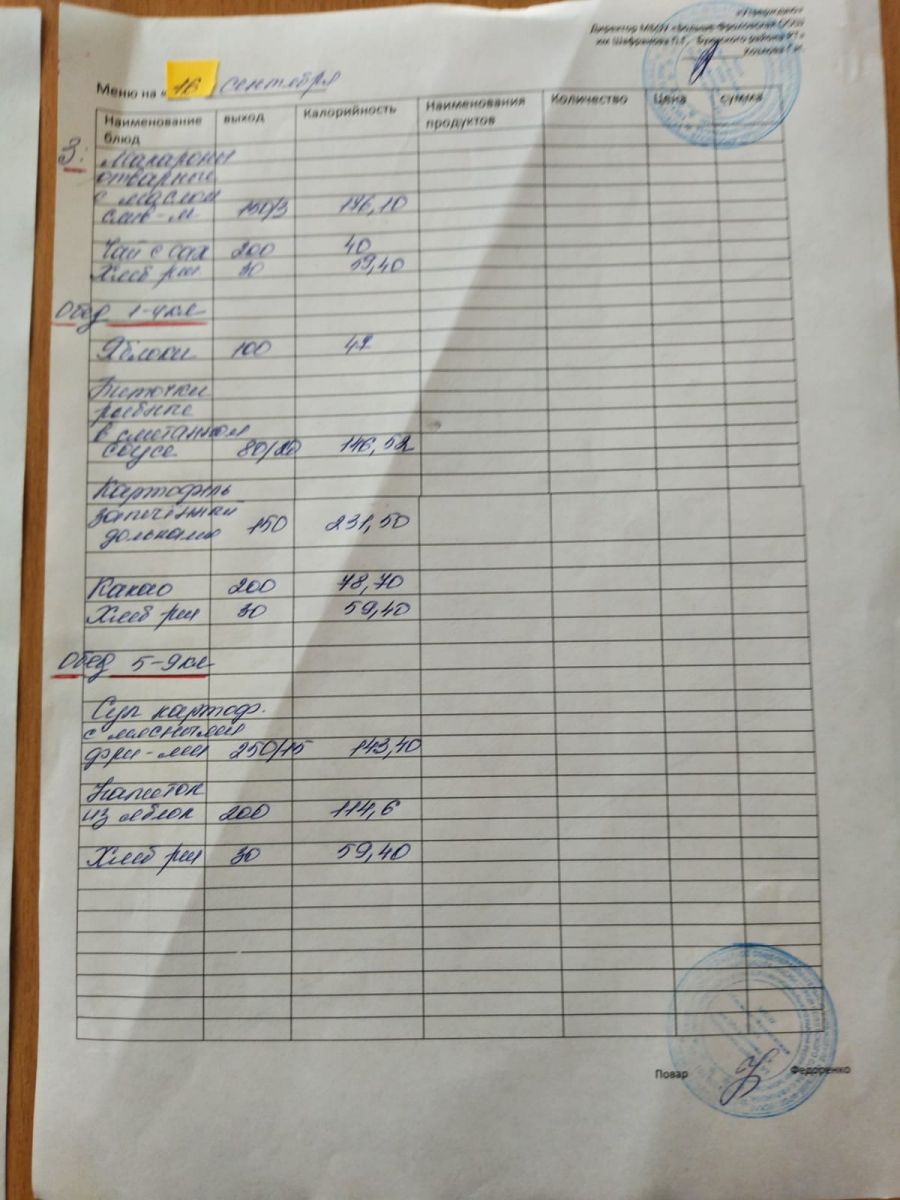 «Утверждаю»
Директор МБОУ «Больше-Фроловская ООШ
им Шафранова П.Г. Буинского района РТ»
Меню на «16 сентября
Наименование блюд выход Калорийность Наименования продуктов Количество Цена сумма
З:
Макароны
отварные
с маслом
слив-м 150/3 176,10
Чай с сах 200 40
Хлеб рж 30 59,40
Обед 1-4 кл
Яблоки 100 42
Биточки
рыбные
в сметанном
соусе 80/20 146,52
Картофель
запечённый
дольками 150 231,50
Какао 200 78,70
Хлеб рж 30 59,40
Обед 5-9 кл
Суп картоф.
с мясными
фри-ми 250/15 143,40
Напиток
из яблок 200 114,6
Хлеб рж 30 59,40
Повар Федоренко